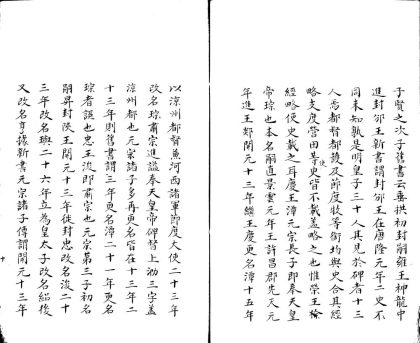 子賢之次子舊書云垂拱初封嗣雍王神龍中
進封邠王新書謂封邠王在唐隆元年二史不
同未知孰是明皇子三十人其見於碑者十三
人為都督都護及節度牧等銜均與史合其經
略支度營田等使史皆不載蓋略之也惟榮王檢
經略使史載之耳慶王潭元宗長子即奉天皇
帝琮也本名嗣直景雲元年王許昌郡先天元
年進王郯開元十三年徙王慶更名潭十五年
以涼州都督兼河西諸軍節度大使二十三年
改名琮肅宗進謚奉天皇帝碑督上泐三字蓋
涼州都也元宗諸子多再更名皆在十三年二
十三年則舊書謂二年更名潭二十一年更名
琮者誤也忠王浚即肅宗也元宗第三子初名
嗣昇封陝王開元十三年徙封忠改名浚二十
三年改名璵二十六年立為皇太子改名紹後
又改名亨據新書元宗諸子傳謂開元十三年